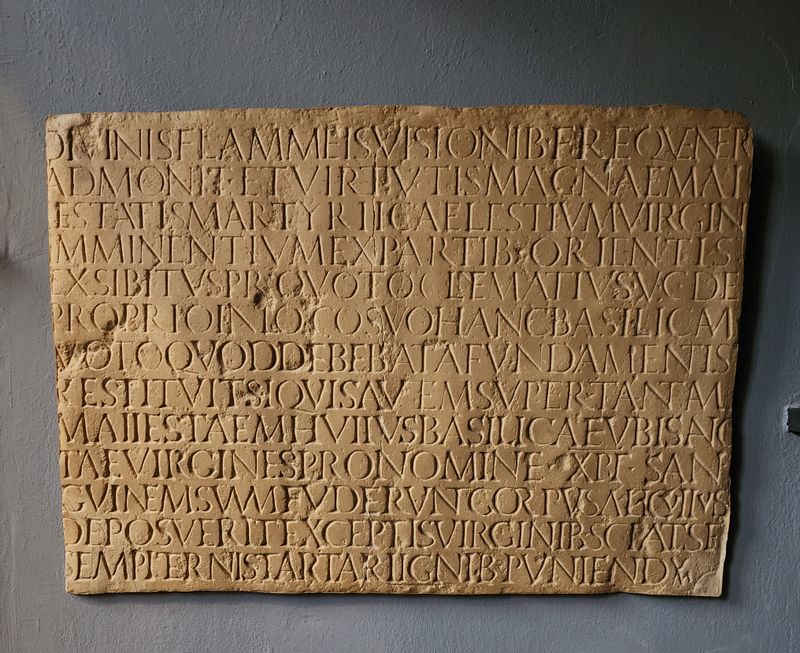 DIVINIS FLAMMEIS VISIONIB· FREQVENTER
ADMONIT· ET VIRTVTIS MAGNAE MAI
IESTATIS MARTYRII CAELESTIVM VIRGIN
IMMINENTIVM EX PARTIB· ORIENTIS
EXSIBITVS PRO VOTO CLEMATIVS V·C· DE
PROPRIO IN LOCO SVO HANC BASILICAM
VOTO QVOD DEBEBAT A FVNDAMENTIS
RESTITVIT SI QVIS AVTEM SVPER TANTAM
MAIIESTATEM HVIIVS BASILICAE VBI SANC
TAE VIRGINES PRO NOMINE · XPI · SAN
GVINEM SVVM FVDERVNT CORPVS ALICVIIVS
DEPOSVERIT EXCEPTIS VIRGINIB· SCIAT SE
SEMPITERNIS TARTARI IGNIB· PVNIENDVM